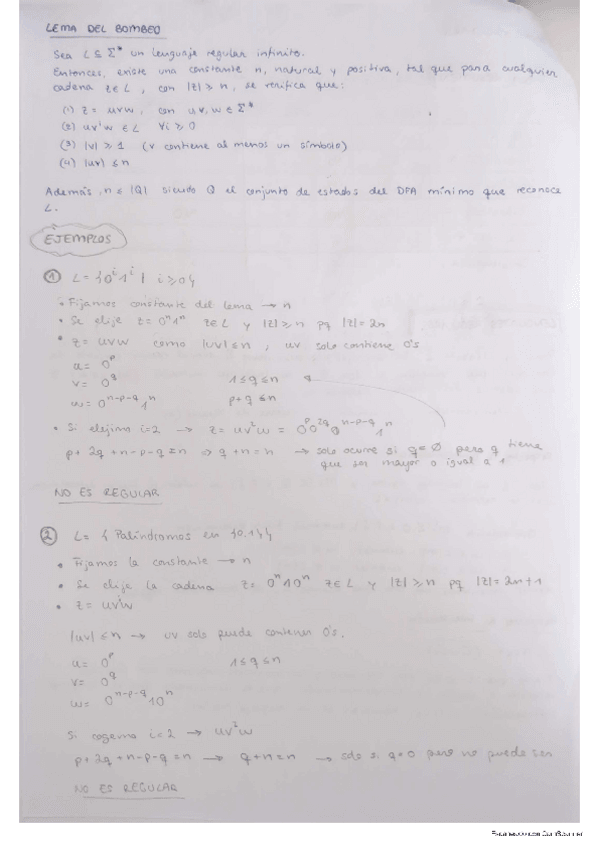 LEMA DEL BOMBEO
Sea L ⊆ Σ* un lenguaje regular infinito.
Entonces, existe una constante n, natural y positiva, tal que para cualquier
cadena z ∈ L, con |z| ≥ n, se verifica que:
(1) z = uvw, con u,v,w ∈ Σ*
(2) uvⁱw ∈ L ∀i ≥ 0
(3) |v| ≥ 1 (v contiene al menos un símbolo)
(4) |uv| ≤ n
Además, n ≤ |Q| siendo Q el conjunto de estados del DFA mínimo que reconoce
L.
EJEMPLOS
① L = {0ⁱ1ⁱ | i ≥ 0}
• Fijamos constante del lema → n
• Se elije z = 0ⁿ1ⁿ z ∈ L y |z| ≥ n pq |z| = 2n
• z = uvw como |uv| ≤ n, uv solo contiene 0's
u = 0ᵖ
v = 0^q 1 ≤ q ≤ n
w = 0^(n-p-q) 1ⁿ p+q ≤ n
• Si elejimo i=2 → z = uv²w = 0ᵖ0^(2q)0^(n-p-q)1ⁿ
p + 2q + n - p - q = n ⇒ q + n = n → solo ocurre si q = ∅ pero q tiene
que ser mayor o igual a 1
NO ES REGULAR
② L = { Palíndromos en {0,1}}
• Fijamos la constante → n
• Se elije la cadena z = 0ⁿ10ⁿ z ∈ L y |z| ≥ n pq |z| = 2n+1
• z = uvⁱw
|uv| ≤ n → uv solo puede contener 0's.
u = 0ᵖ 1 ≤ q ≤ n
v = 0^q
w = 0^(n-p-q) 10ⁿ
Si cogemo i=2 → uv²w
p + 2q + n - p - q = n → q + n = n → solo si q=0 pero no puede ser
NO ES REGULAR